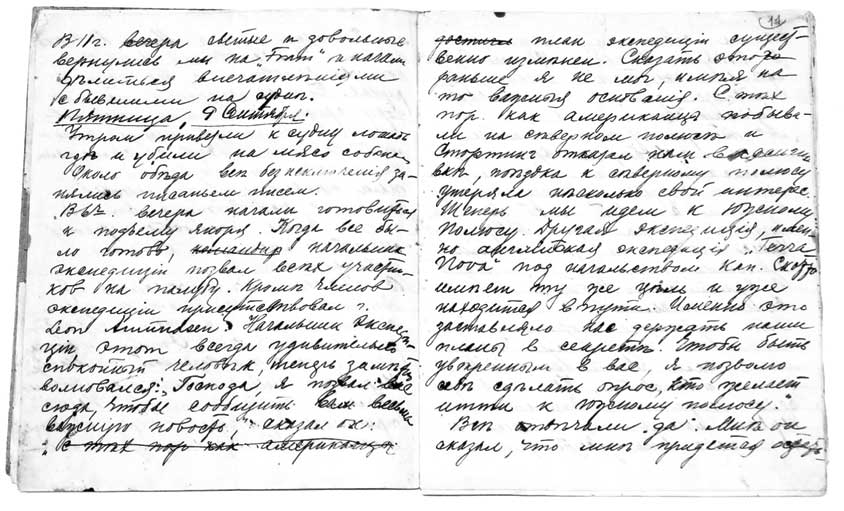 В 11 ч. вечера сытые и довольные
вернулись мы на „Fram" и начали
дѣлиться впечатлѣніями
съ бывшими на судне.
Пятница, 9 Сентября.
Утром привели к судну лошадь
гдѣ и убили на мясо собакам.
Около обѣда всѣ без исключенія за-
нялись писаньем писем.
В 6 ч. вечера начали готовиться
к подъему якоря. Когда все бы-
ло готово, командир начальник
экспедиціи позвал всѣх участни-
ков на палубу. Кромѣ членов
экспедиціи присутствовал г.
Leon Amundsen. Начальник экспеди-
ціи этот всегда удивительно
спокойный человѣк, теперь замѣтно
волновался: „Господа, я позвал вас
сюда, чтобы сообщить вам весьма
важную новость," сказал он:
„С тѣх пор как американцы
14
достигли план экспедиціи сущест-
венно измѣнен. Сказать этого
раньше я не мог, имѣя на
то важныя основанія. С тѣх
пор как американцы побыва-
ли на сѣверном полюсѣ и
Стортинг отказал нам в
поѣздка к сѣверному полюсу
утеряла нѣсколько свой интерес.
Теперь мы идем к Южному
Полюсу. Другая экспедиція, имен-
но англійская экспедиція „Terra
Nova" под начальством кап. Скотта
имѣет ту же цѣль и уже
находится в пути. Именно это
заставляло нас держать наши
планы в секретѣ. Чтобы быть
увѣренным в вас, я позволю
себѣ сдѣлать опрос, кто желает
итти к южному полюсу."
Всѣ отвѣчали да. Мнѣ он
сказал, что мнѣ придется